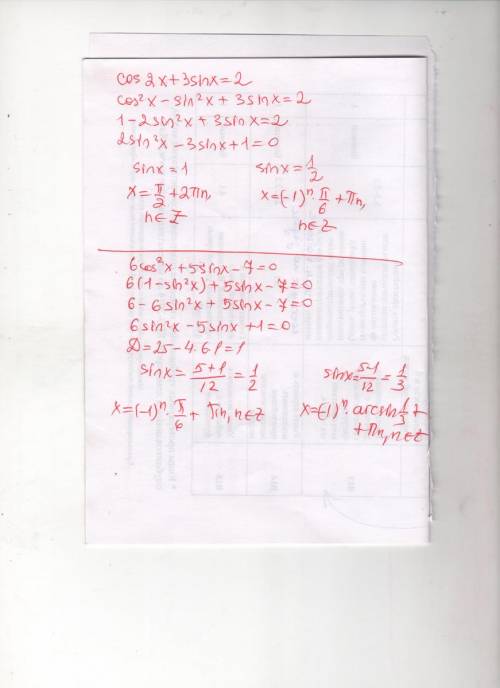 cos2x+3sinx=2
cos²x-sin²x+3sinx=2
1-2sin²x+3sinx=2
2sin²x-3sinx+1=0
sinx=1
x=π/2+2πn,
n∈Z
sinx=1/2
x=(-1)ⁿ·π/6+πn,
n∈Z
6cos²x+5sinx-7=0
6(1-sin²x)+5sinx-7=0
6-6sin²x+5sinx-7=0
6sin²x-5sinx+1=0
D=25-4·6·1=1
sinx=(5+1)/12=1/2
x=(-1)ⁿ·π/6+πn, n∈Z
sinx=(5-1)/12=1/3
x=(-1)ⁿ·arcsin1/3+
+πn, n∈Z